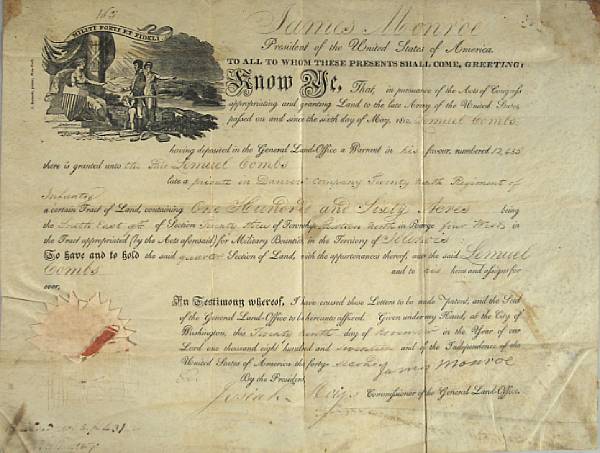 163
James Monroe
President of the United States of America.
TO ALL TO WHOM THESE PRESENTS SHALL COME, GREETING:
MILITI FORTI ET FIDELI
Know Ye, That, in pursuance of the Acts of Congress
appropriating and granting Land to the late Army of the United States,
passed on and since the sixth day of May, 1812 Lemuel Combs
having deposited in the General Land-Office a Warrant in his favour, numbered
there is granted unto the said Lemuel Combs
late a private in Company Twenty Regiment of
Infantry
a certain Tract of Land, containing One Hundred and Sixty Acres being
the South East qr. of Section Twenty of Township North in Range four West in
the Tract appropriated (by the Acts aforesaid) for Military Bounties, in the Territory of Illinois
To have and to hold the said quarter Section of Land, with the appurtenances thereof, unto the said Lemuel
Combs and to his heirs and assigns for-
ever.
In Testimony whereof, I have caused these Letters to be made patent, and the Seal
of the General Land-Office to be hereunto affixed. Given under my Hand, at the City of
Washington, this Twenty day of November in the Year of our
Lord one thousand eight hundred and seventeen and of the Independence of the
United States of America the forty-second
By the President, James Monroe
Josiah Meigs Commissioner of the General Land-Office.